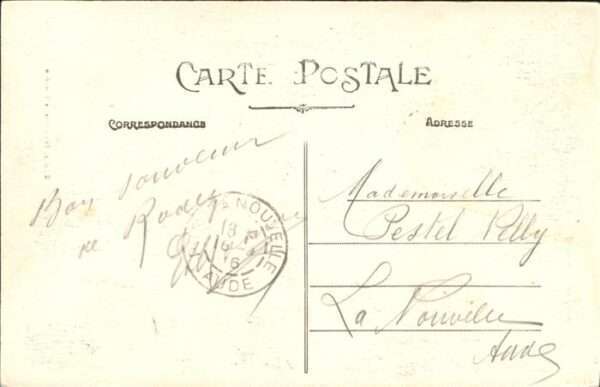 CARTE POSTALE
CORRESPONDANCE
ADRESSE
Bon souvenir
de Rodez
LA NOUVELLE
18
16
AUDE
Mademoiselle
Pestel Nelly
La Nouvelle
Aude